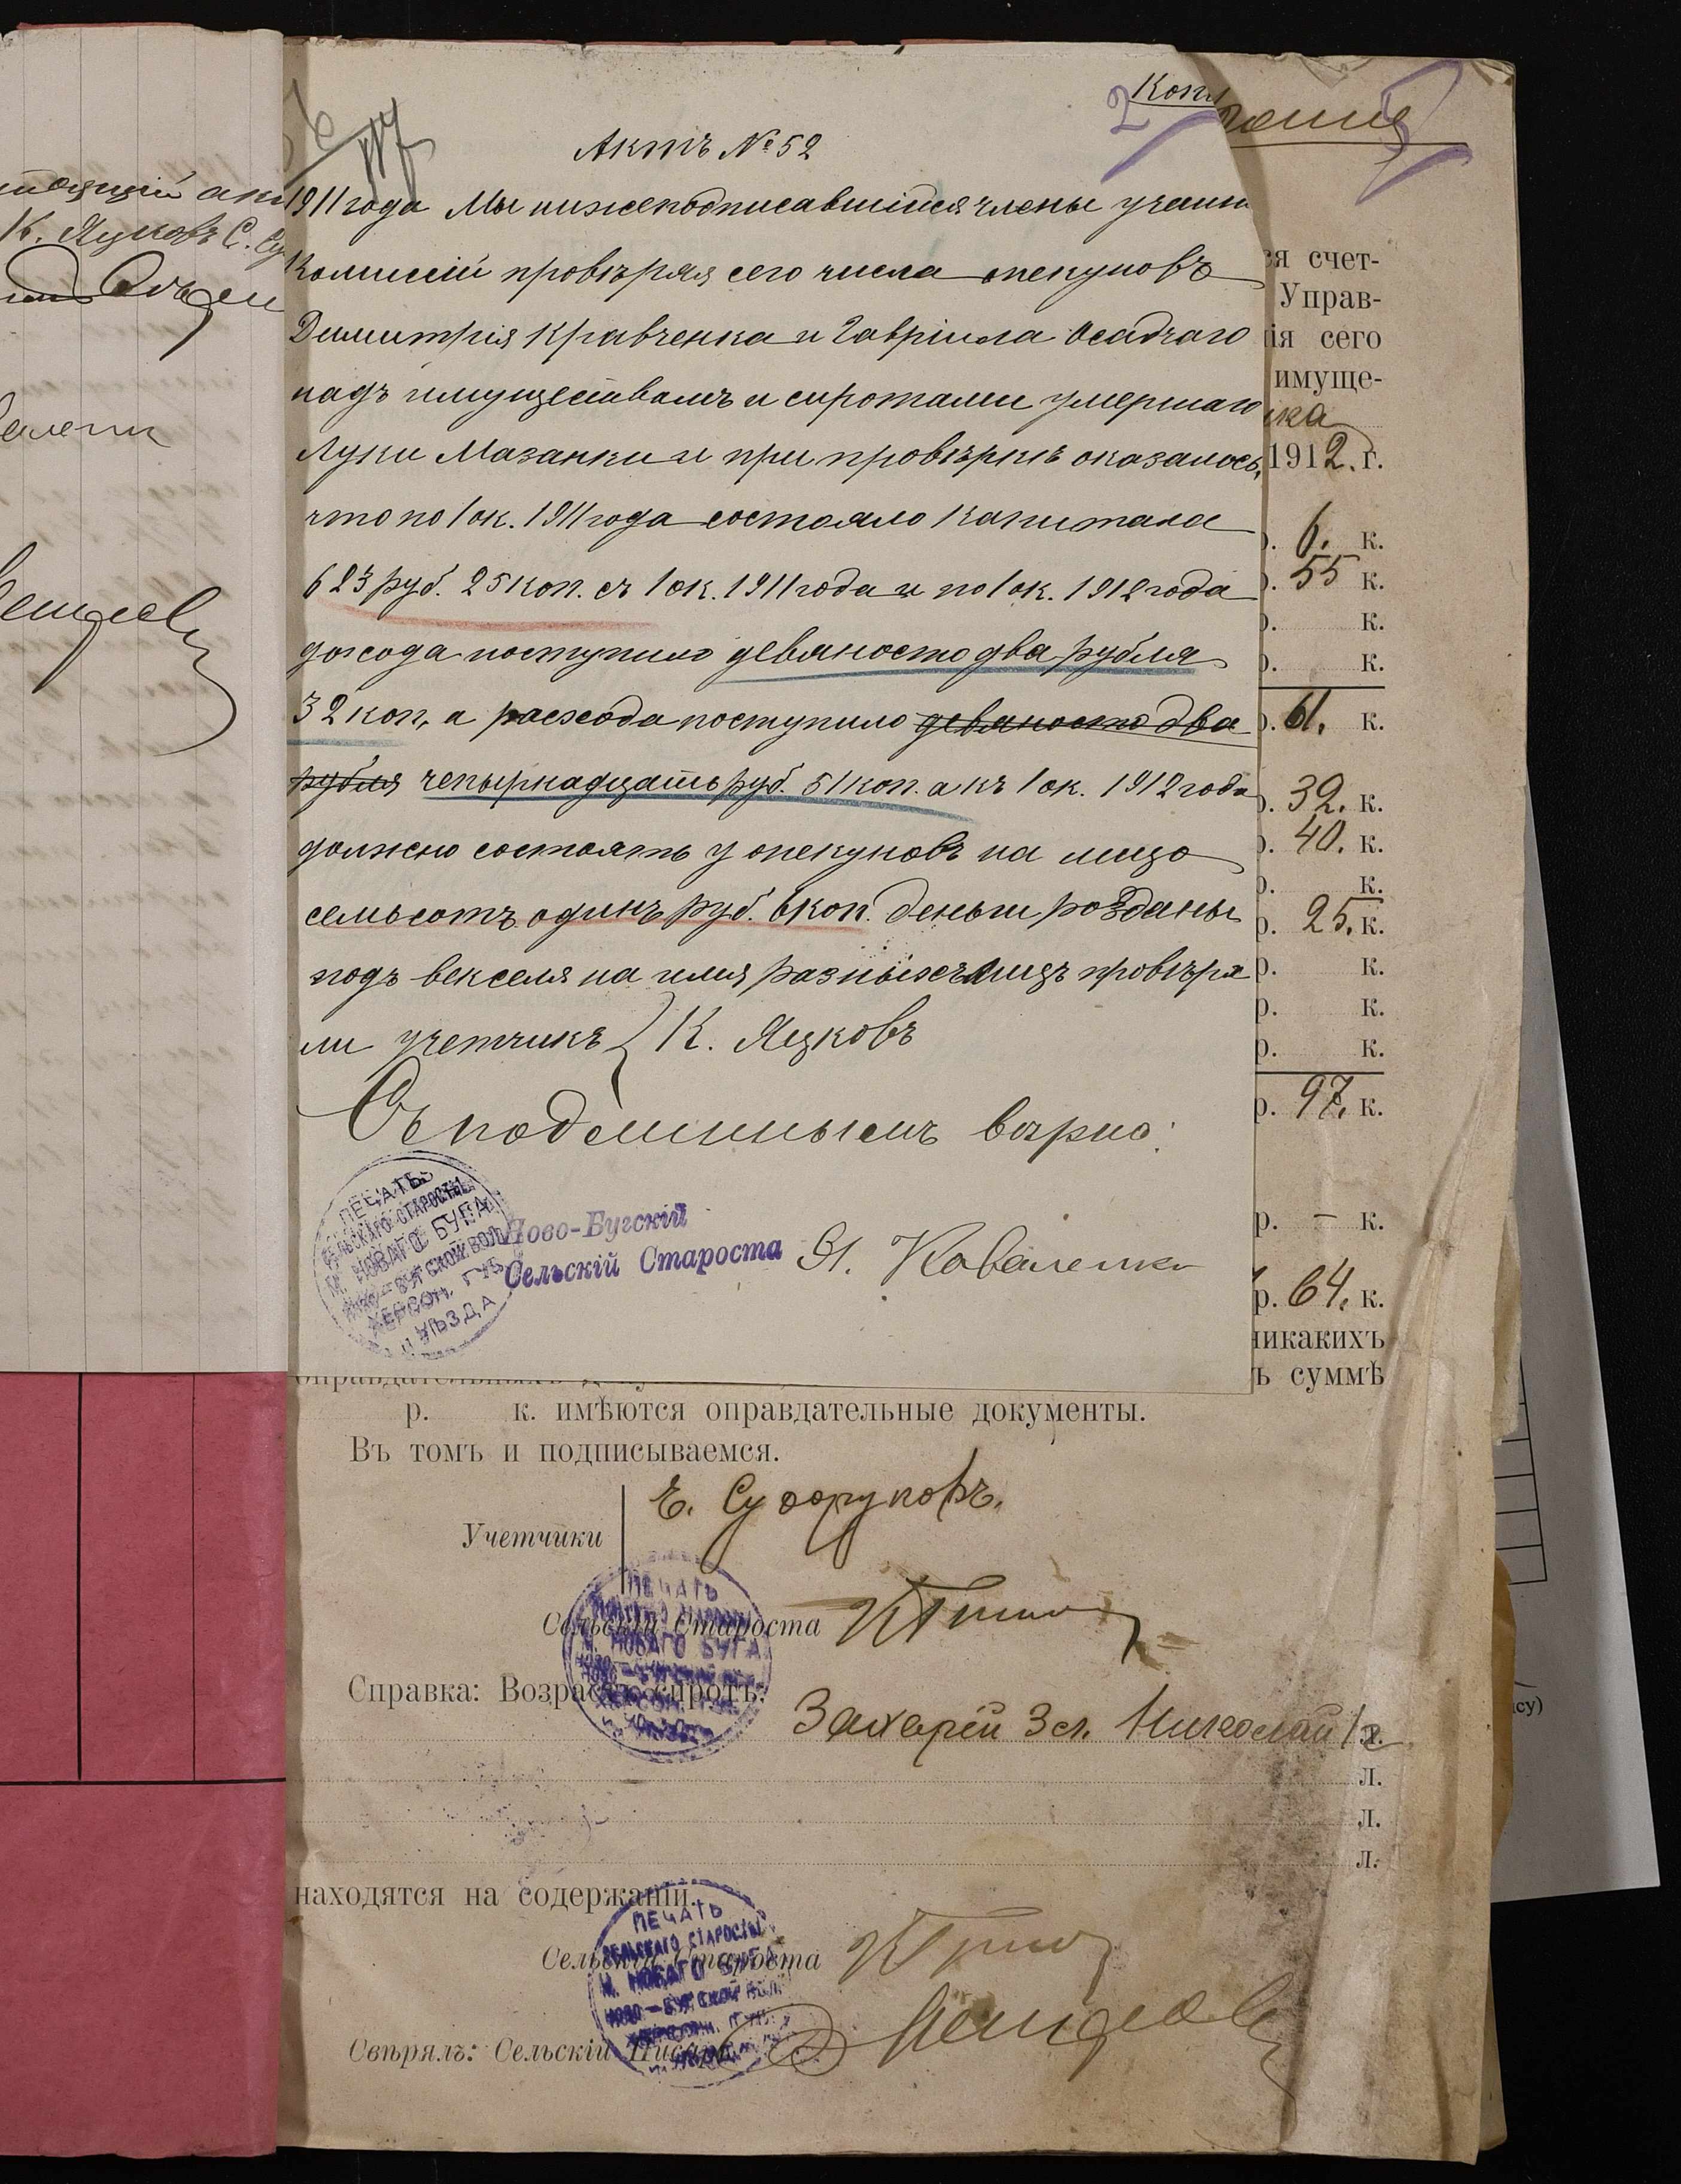 тоящій ак
К. Яцковъ С.
2
Коп
Актъ № 52
1911 года Мы нижеподписавшійся члены учетн
Комиссіи провѣряя сего числа опекуновъ
Димитрія Кравченка и Гавріила Осадчаго
надъ имуществамъ и сиротами умершаго
Луки Мазанки и при провѣркѣ оказалось,
что по 1 ок. 1911 года состояло капитала
623 руб. 25 коп. съ 1 ок. 1911 года и по 1 ок. 1912 года
дохода поступило девяносто два рубля
32 коп, а расхода поступило девяносто два
рубля четырнадцать руб. 51 коп. а къ 1 ок. 1912 года
должно состоять у опекуновъ на лицо
семьсотъ одинъ руб. 6 коп. деньги розданы
подъ векселя на имя разныхъ лицъ провѣря
ли учетчикъ К. Яцковъ
Съ подлиннымъ вѣрно:
ПЕЧАТЬ
СЕЛЬСКАГО СТАРОСТЫ
М. НОВАГО БУГА
НОВО-БУГСКОЙ ВОЛ.
ХЕРСОН. ГУБ.
И УѢЗДА
Ново-Бугскій
Сельскій Староста
Коваленко
ся счет-
Управ-
ія сего
имуще-
ка
1912. г.
р. 6. к.
р. 55 к.
р. к.
р. к.
р. 61. к.
р. 32. к.
р. 40. к.
р. к.
р. 25. к.
р. к.
р. к.
р. к.
р. 97. к.
р. – к.
р. 64. к.
никакихъ
ъ суммѣ
оправдательныхъ
р. к. имѣются оправдательные документы.
Въ томъ и подписываемся.
Учетчики
ПЕЧАТЬ
М. НОВАГО БУГА
Сельскій Староста
Справка: Возрастъ сиротъ:
Захарій 3 л. Николай 1 л.
л.
л.
л.
находятся на содержаніи.
ПЕЧАТЬ
СЕЛЬСКАГО СТАРОСТЫ
М. НОВАГО БУГА
НОВО-БУГСКОЙ ВОЛ.
Сельскій Староста
Свѣрялъ: Сельскій Писарь
су)